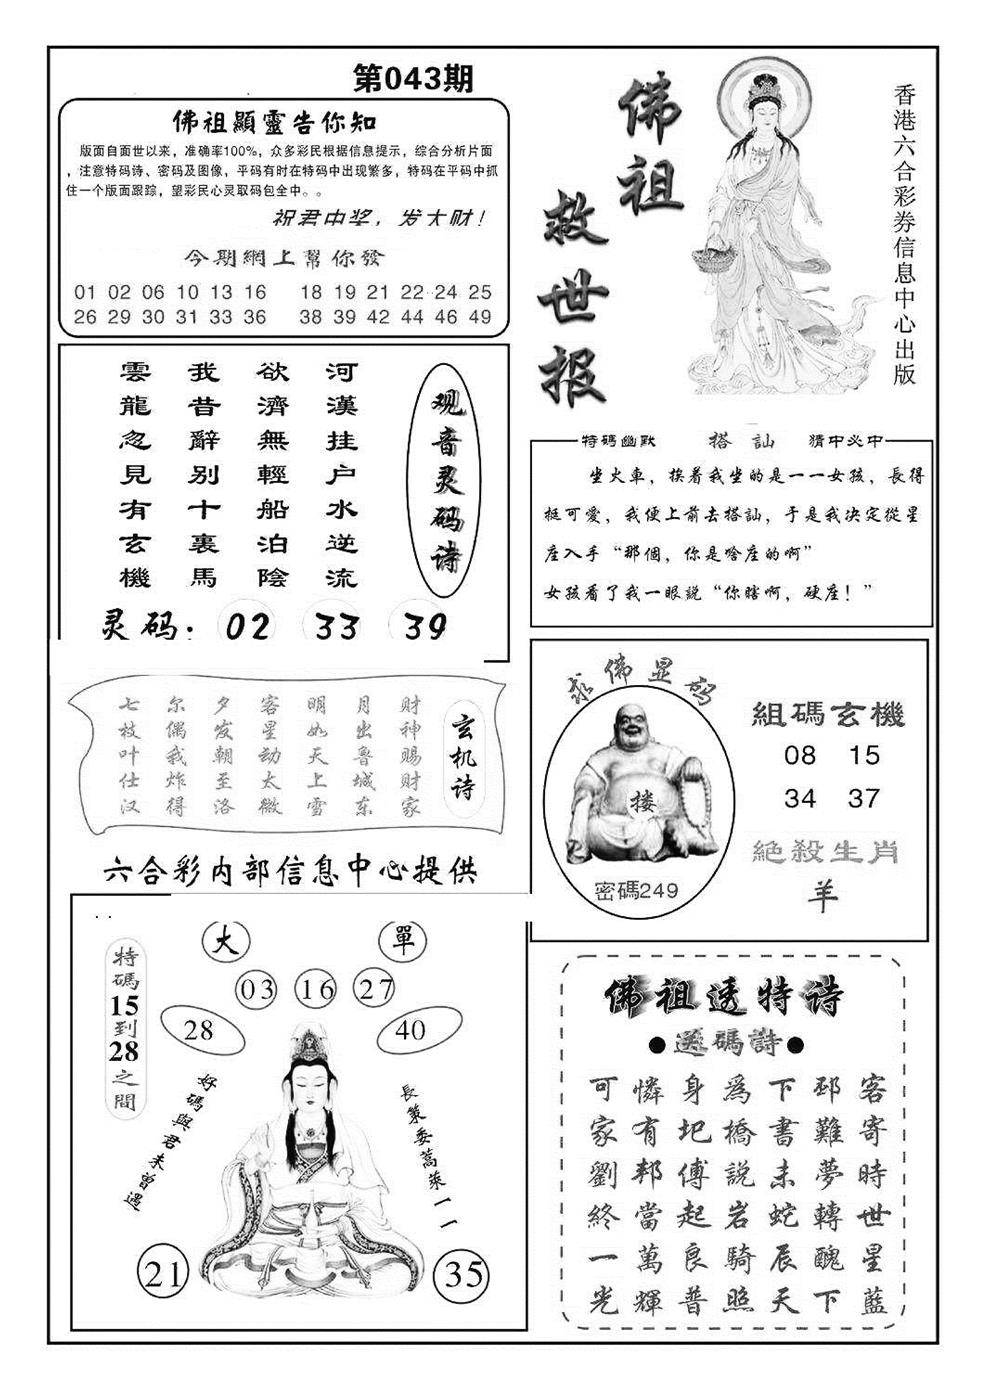 第043期
佛祖顯靈告你知
版面自面世以来，准确率100%，众多彩民根据信息提示，综合分析片面
，注意特码诗、密码及图像，平码有时在特码中出现繁多，特码在平码中抓
住一个版面跟踪，望彩民心灵取码包全中。。
祝君中奖，发大财！
今期網上幫你發
01 02 06 10 13 16 18 19 21 22 24 25
26 29 30 31 33 36 38 39 42 44 46 49
佛祖
救世报
香港六合彩券信息中心出版
观音灵码诗
河漢挂户水逆流
欲濟無輕船泊陰
我昔辭别十裏馬
雲龍忽見有玄機
灵码：02 33 39
特碼幽默 搭訕 猜中必中
坐火車，挨着我坐的是一一女孩，長得
挺可愛，我便上前去搭訕，于是我决定從星
座入手“那個，你是啥座的啊”
女孩看了我一眼説“你瞎啊，硬座！”
玄机诗
财神赐财家
月出鲁城东
明如天上雪
客星动太微
夕发朝至洛
尔偶我炸得
七枝叶仕汉
六合彩内部信息中心提供
求佛显码
搂
密碼249
組碼玄機
08 15
34 37
絕殺生肖
羊
大
單
03 16 27
28
40
特碼15到28之間
好碼與君未曾遇
長策委蒿萊一一
21
35
佛祖透特诗
●送碼詩●
可憐身為下邳客
家有圯橋書難寄
劉邦傅説未夢時
終當起岩蛇轉世
一萬良騎辰醜星
光輝普照天下藍